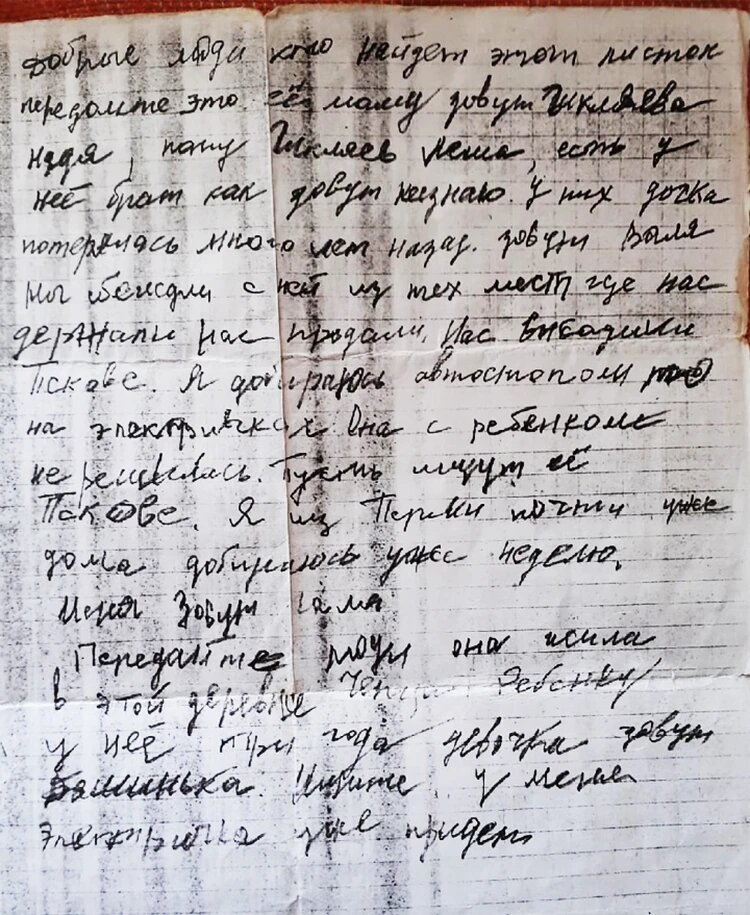 Добрые люди кто найдет этот листок
передойте это её маму зовут Шкляева
надя, папу Шкляев Леша, есть у
неё брат как зовут незнаю. У них дочка
потерялась много лет назад. зовут Валя
Мы бежали с ней из тех мест где нас
держали нас продали, Нас
Пскове. Я добираюсь автостопом то
на электричках Она с ребенкоме
не решилась. Пусть ищут её
Пскове. Я из Перми почти уже
дома добираюсь уже неделю.
Меня Зовут
Передайте люди она жила
в этой деревне Ребенку
у неё три года девочка зовут
Ищите у меня
Электричка уже придет